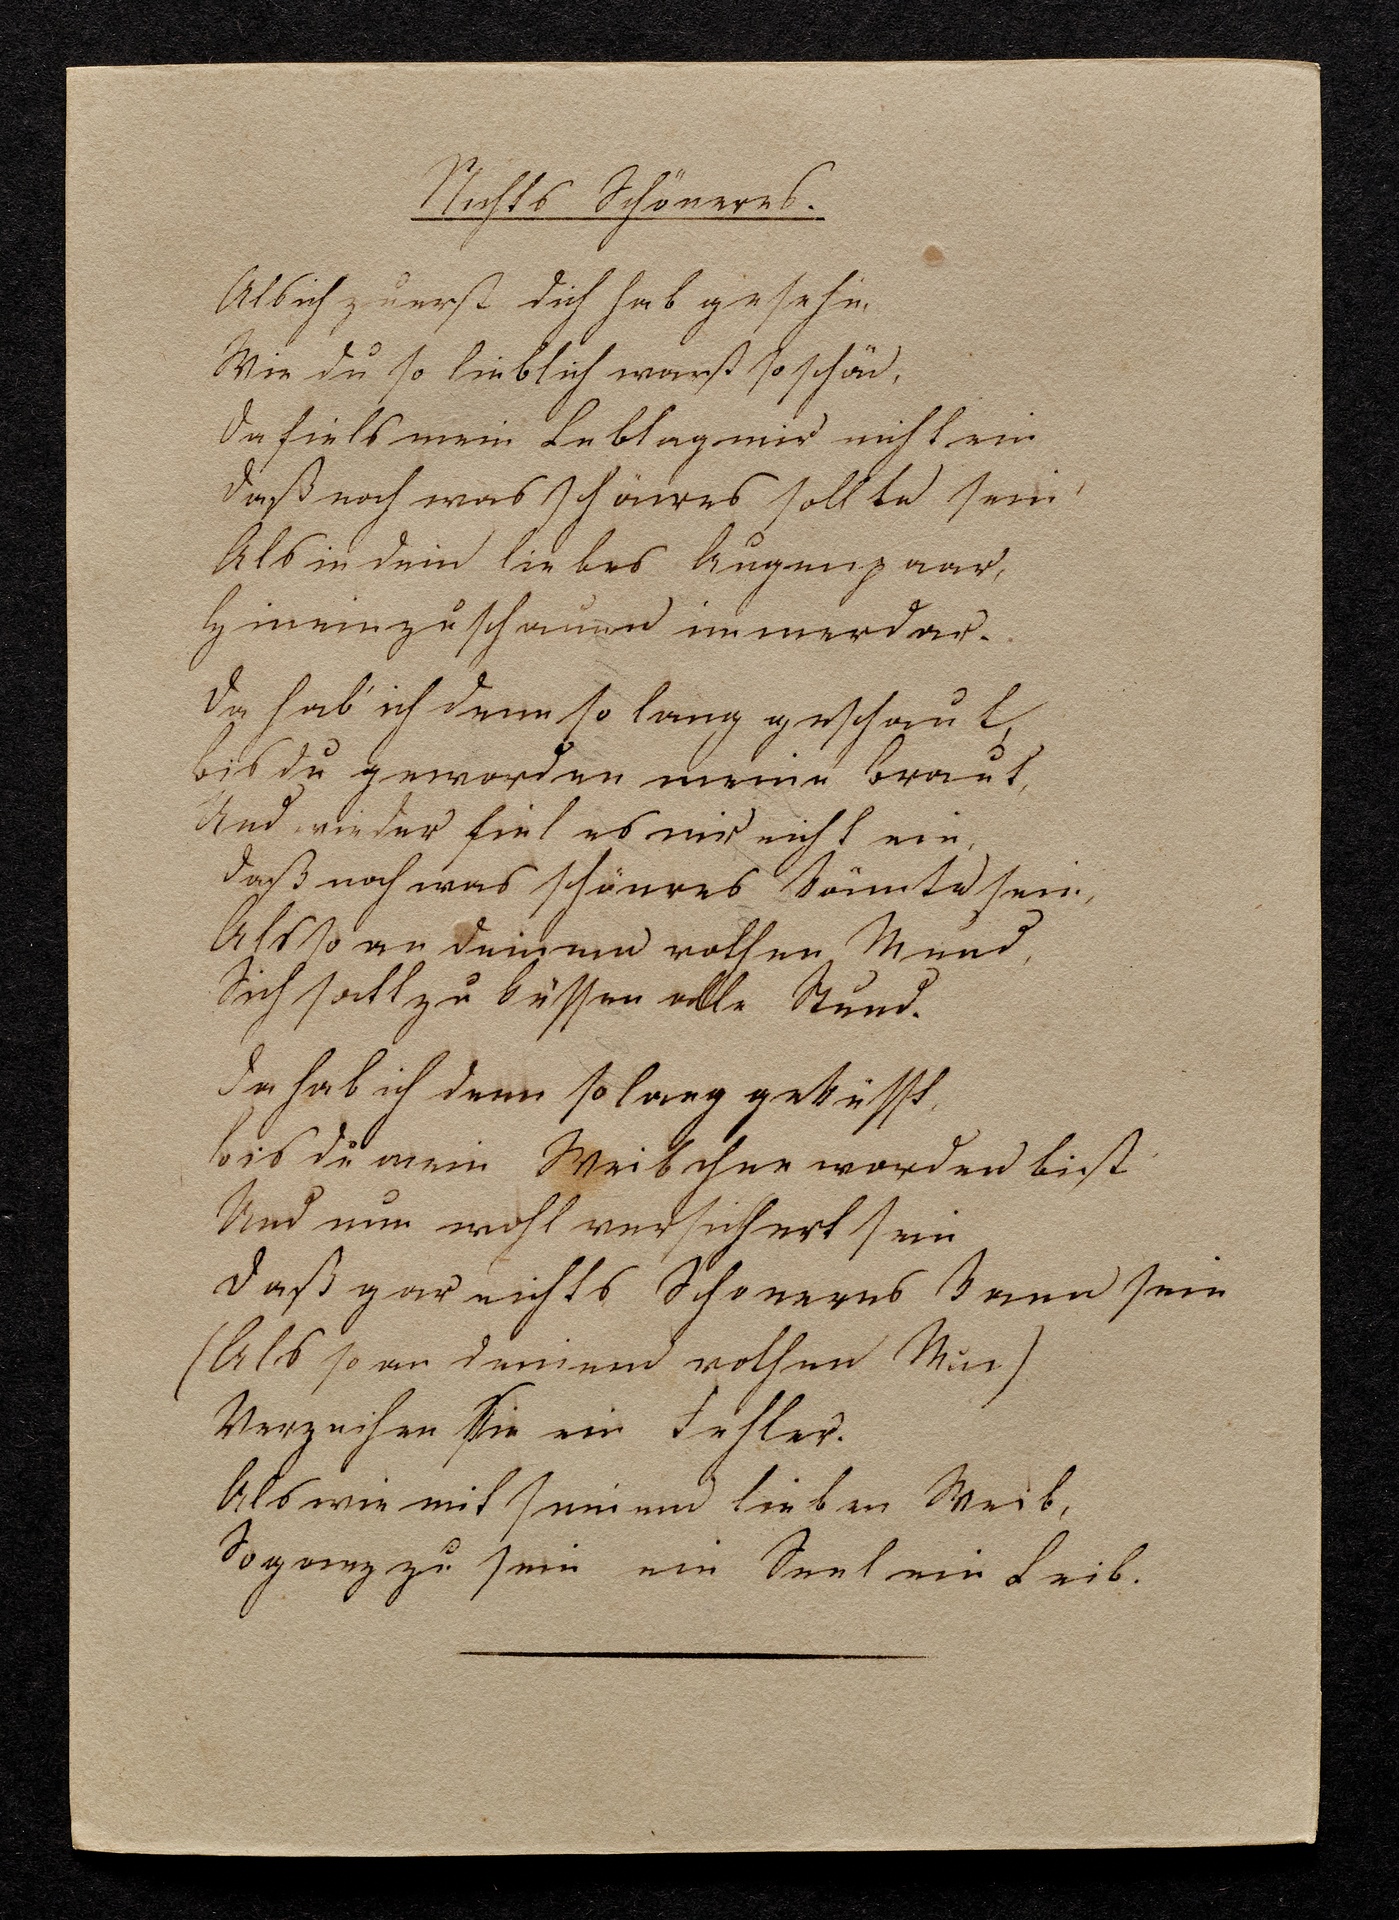 Nichts Schöneres.
Als ich zuerst dich hab gesehn.
Wie du so lieblich warst so schön,
Da fiels mein Lebtag mir nicht ein
Daß noch was schönres sollte sein
Als in dein liebes Augenpaar,
Hineinzuschauen immerdar.
Da hab' ich denn so lang geschaut,
bis du geworden meine Braut,
Und wieder fiel es mir nicht ein,
Daß noch was schönres könnte sein,
Als so an deinem rothen Mund,
Sich satt zu küssen alle Stund.
Da hab ich denn so lang geküsst,
bis du mein Weibchen worden bist
Und nun wohl versichert sein
Daß gar nichts Schoneres kann sein
(Als so an deinem rothen Mun)
Verzeihen Sie ein Fehler.
Als wie mit seinem lieben Weib,
So ganz zu sein ein Seel ein Leib.